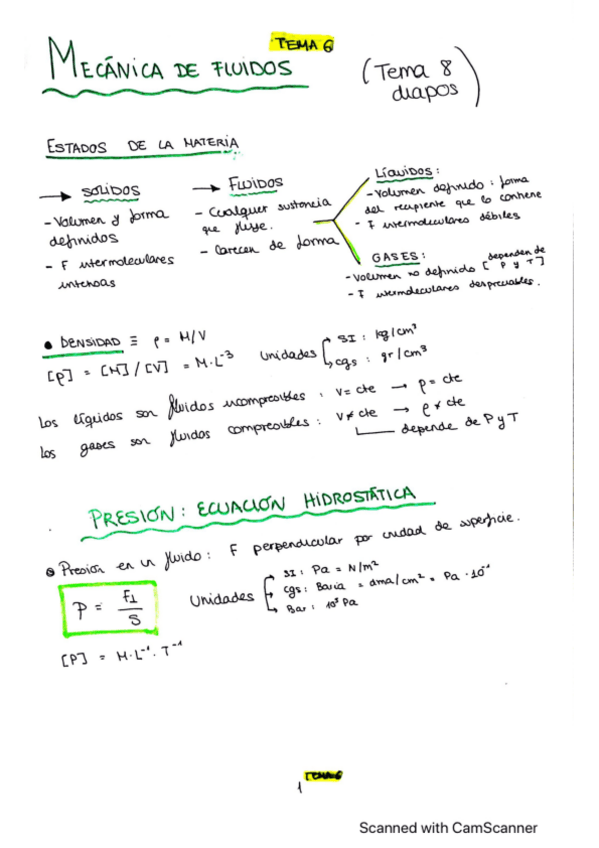 TEMA 6
MECÁNICA DE FLUIDOS
(Tema 8
diapos)
ESTADOS DE LA MATERIA
→ SOLIDOS
- Volumen y forma
definidos
- F intermoleculares
intensas
→ FLUIDOS
- Cualquier sustancia
que fluye.
- Carecen de forma
LÍQUIDOS:
- Volumen definido: forma
del recipiente que lo contiene
- F intermoleculares débiles
GASES:
- Volumen no definido [dependen de
P y T]
- F intermoleculares despreciables.
• DENSIDAD ≡ ρ = M/V
[ρ] = [M]/[V] = M·L⁻³
Unidades
SI: kg/cm³
cgs: gr/cm³
Los líquidos son fluidos incompresibles: V= cte → ρ= cte
Los gases son fluidos compresibles: V≠ cte → ρ ≠ cte
depende de P y T
PRESIÓN: ECUACIÓN HIDROSTÁTICA
Presión en un fluido: F perpendicular por unidad de superficie.
P = F⊥/S
Unidades
SI: Pa = N/m²
cgs: Baria = dina/cm² = Pa·10⁻¹
Bar: 10⁵ Pa
[P] = M·L⁻¹·T⁻¹
TEMA 6
1
Scanned with CamScanner